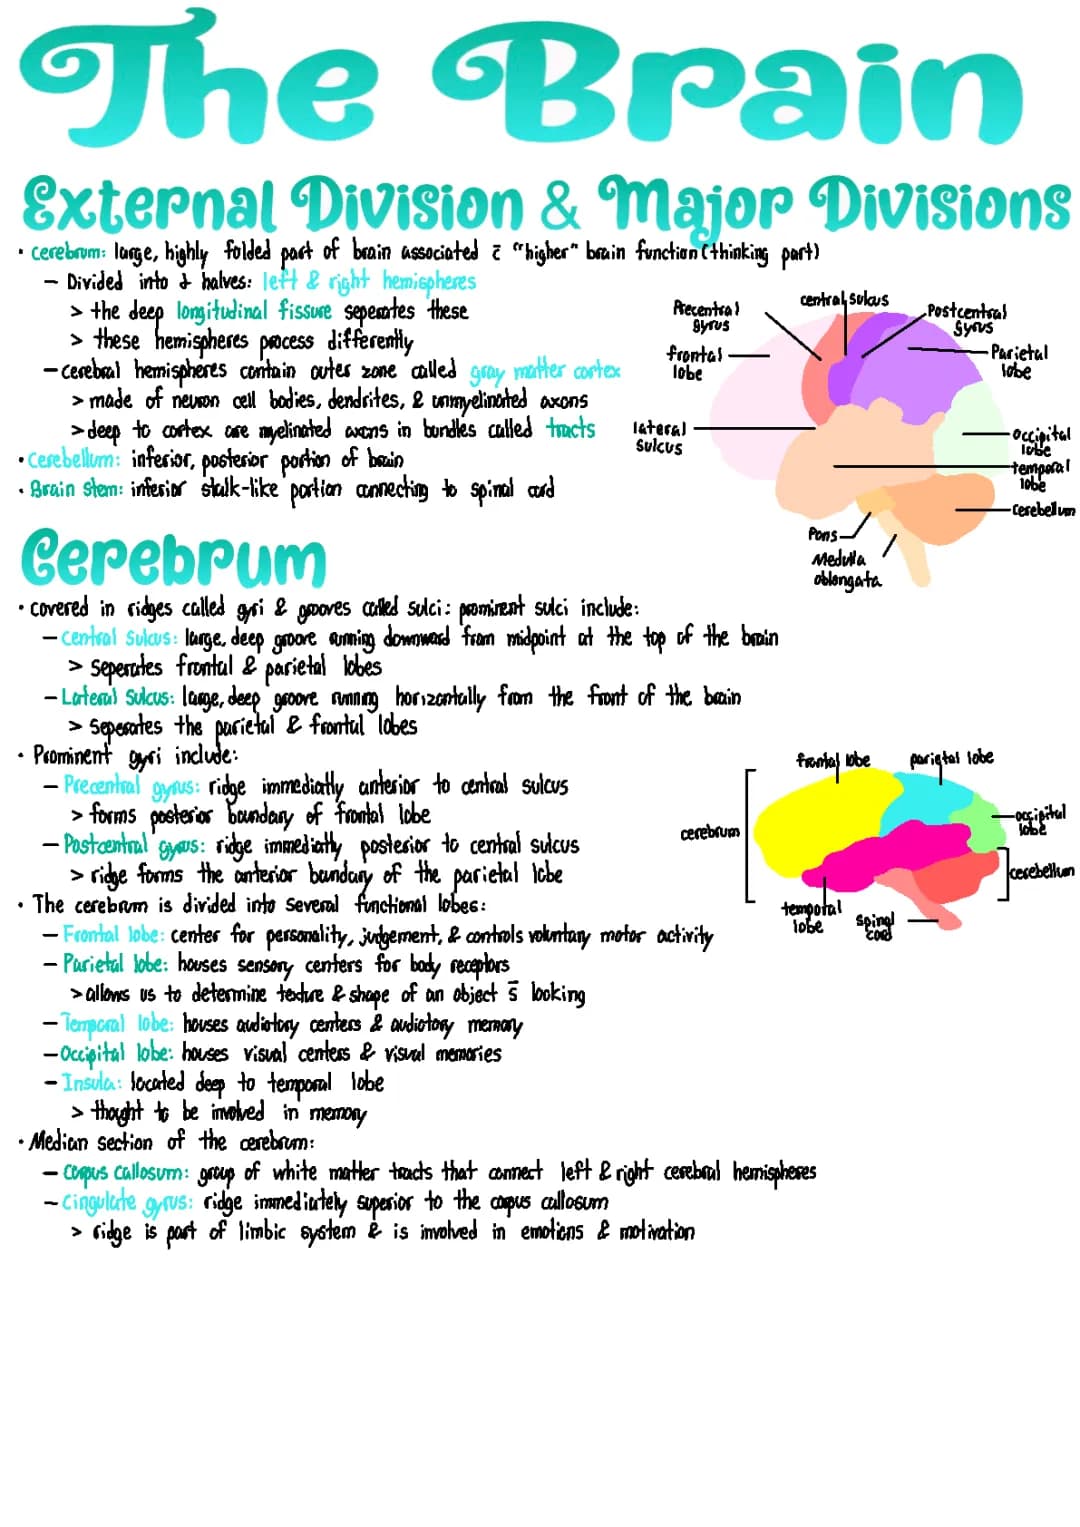 The Brain
External Division & Major Divisions
• cerebrum: large, highly folded part of brain associated c̄ "higher" brain function (thinking part)
– Divided into 2 halves: left & right hemispheres
> the deep longitudinal fissure seperates these
> these hemispheres process differently
– cerebral hemispheres contain outer zone called gray matter cortex
> made of neuron cell bodies, dendrites, & unmyelinated axons
> deep to cortex are myelinated axons in bundles called tracts
• Cerebellum: inferior, posterior portion of brain
• Brain Stem: inferior stalk-like portion connecting to spinal cord
Precentral
gyrus
central sulcus
Postcentral
Gyrus
frontal
lobe
Parietal
lobe
lateral
sulcus
occipital
lobe
temporal
lobe
cerebellum
Pons
Medulla
oblongata
Cerebrum
• covered in ridges called gyri & grooves called sulci: prominent sulci include:
– Central Sulcus: large, deep groove running downward from midpoint at the top of the brain
> Seperates frontal & parietal lobes
– Lateral Sulcus: large, deep groove running horizontally from the front of the brain
> Seperates the parietal & frontal lobes
• Prominent gyri include:
– Precentral gyrus: ridge immediatly anterior to central sulcus
> forms posterior boundary of frontal lobe
– Postcentral gyrus: ridge immediatly posterior to central sulcus
> ridge forms the anterior bundary of the parietal lobe
• The cerebrum is divided into several functional lobes:
– Frontal lobe: center for personality, judgement, & controls voluntary motor activity
– Parietal lobe: houses sensory centers for body receptors
> allows us to determine texture & shape of an object s̄ looking
– Temporal lobe: houses audiotory centers & audiotory memory
– Occipital lobe: houses visual centers & visual memories
– Insula: located deep to temporal lobe
> thought to be involved in memory
• Median section of the cerebrum:
– Corpus Callosum: group of white matter tracts that connect left & right cerebral hemispheres
– Cingulate gyrus: ridge immediately superior to the corpus callosum
> ridge is part of limbic system & is involved in emotions & motivation
frontal lobe
parietal lobe
cerebrum
occipital
lobe
cerebellum
temporal
lobe
spinal
cord